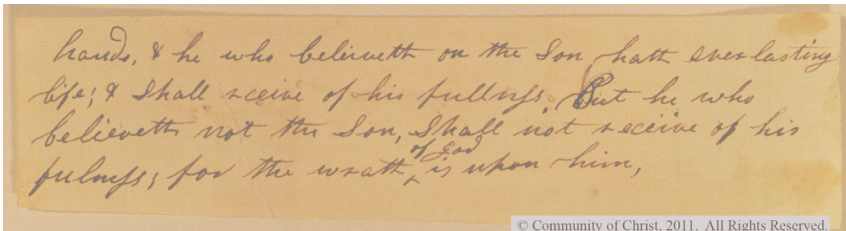 hands, & he who believeth on the Son hath everlasting
life; & Shall receive of his fullness. But he who
believeth not the Son, Shall not receive of his
of God
fulness; for the wrath ^ is upon him,
© Community of Christ, 2011. All Rights Reserved.